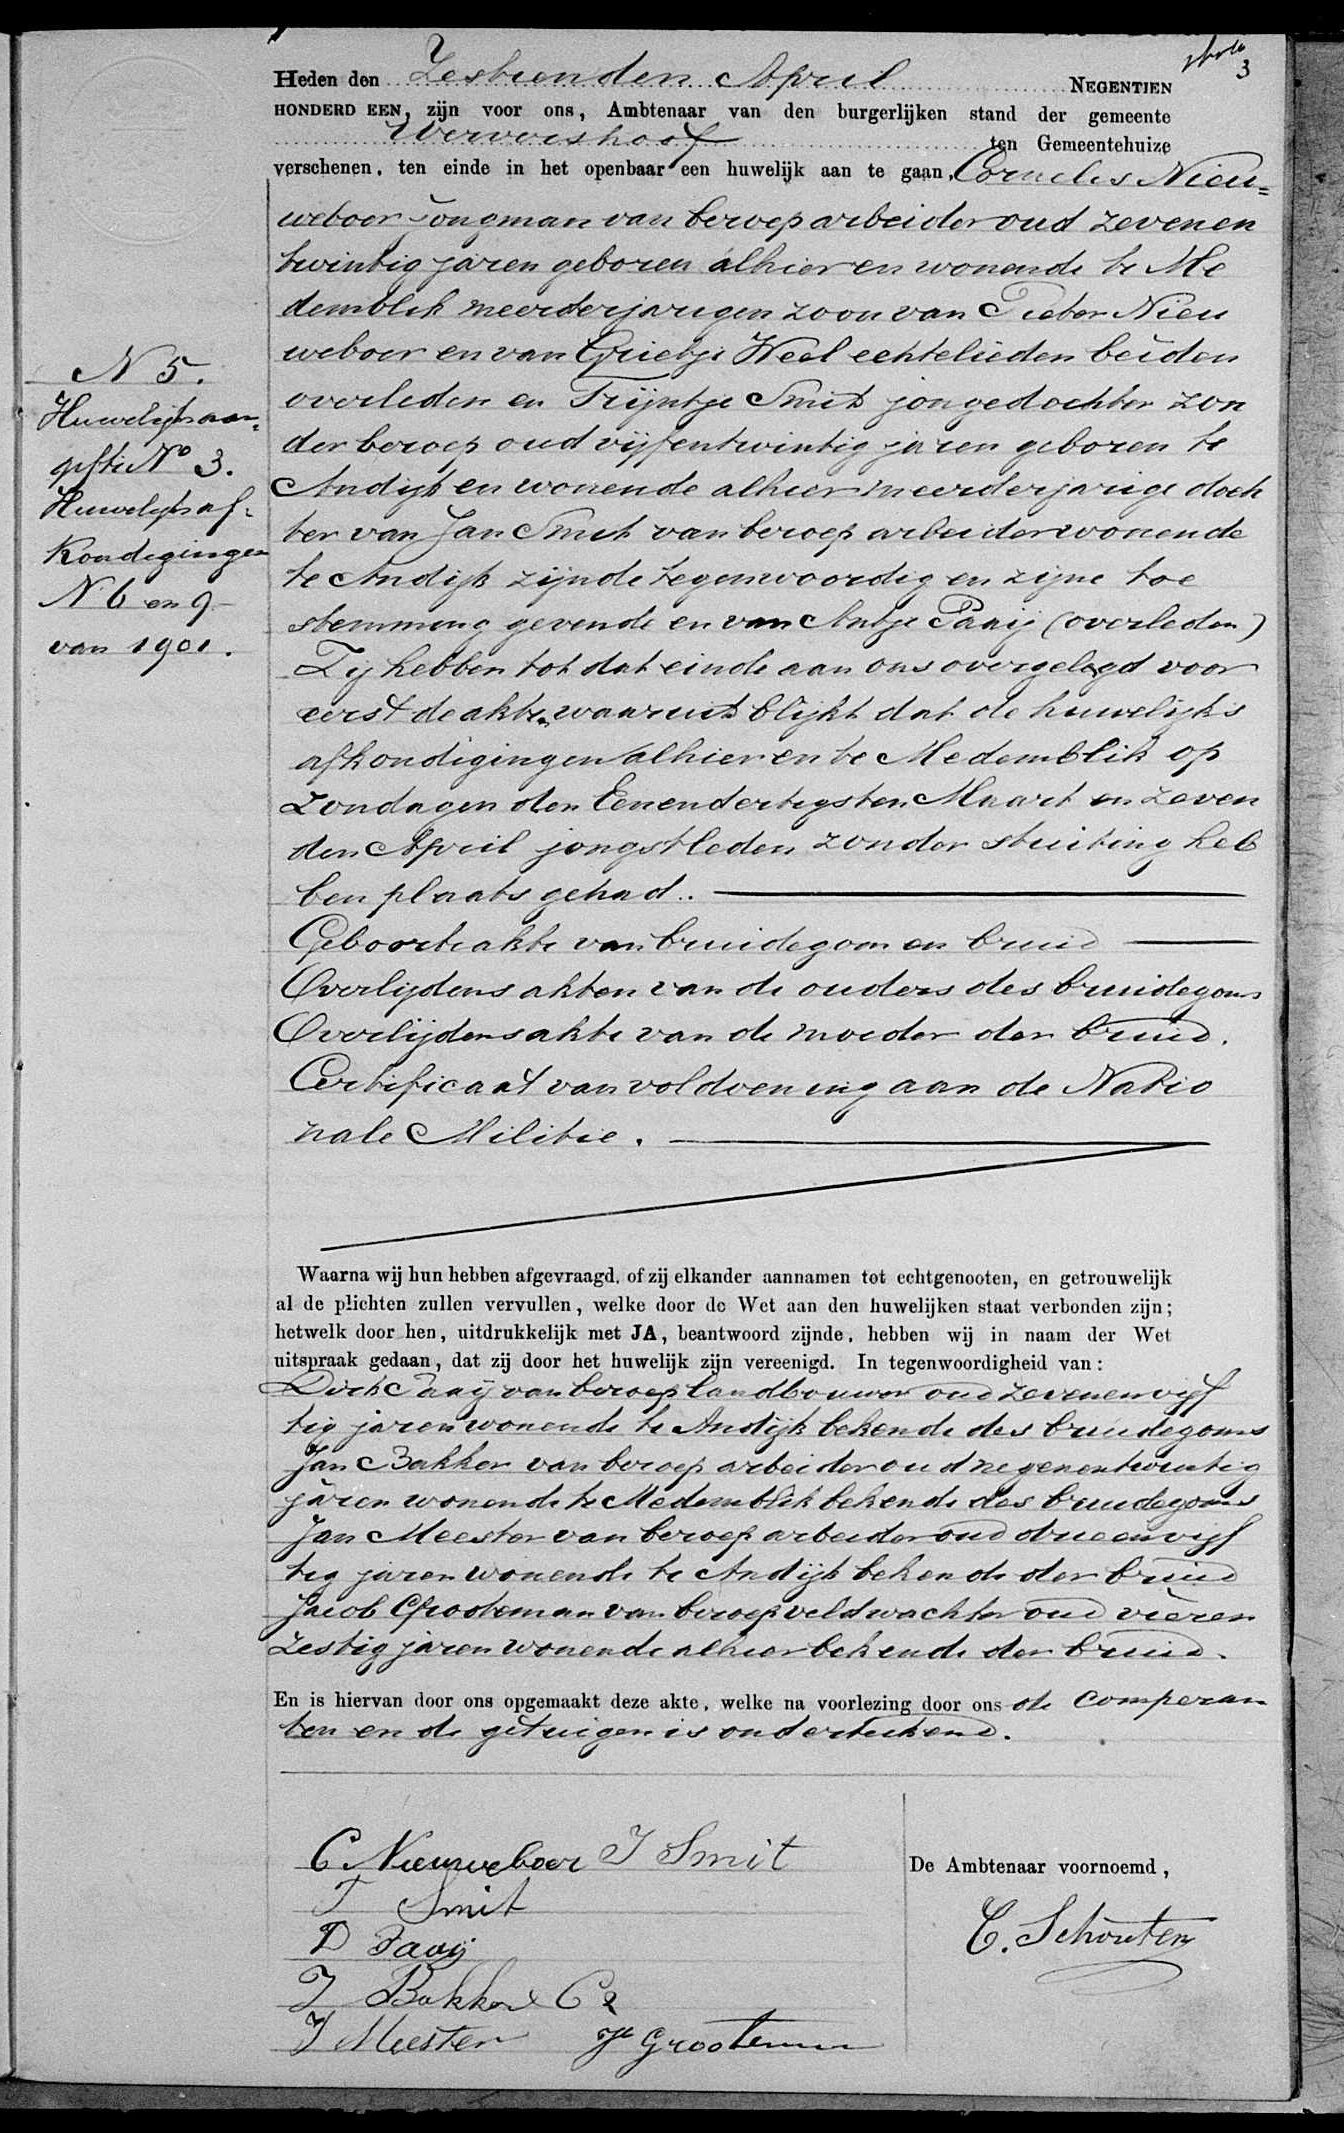 3
Heden den Zestienden April NEGENTIEN
HONDERD EEN, zijn voor ons, Ambtenaar van den burgerlijken stand der gemeente
Wervershoof ten Gemeentehuize
verschenen, ten einde in het openbaar een huwelijk aan te gaan, Cornelis Nieu=
weboer jongman van beroep arbeider oud zevenen
twintig jaren geboren alhier en wonende te Me
demblik meerderjarigen zoon van Pieter Nieu
weboer en van Grietje Weel echtelieden beiden
overleden en Trijntje Smit jongedochter zon
der beroep oud vijfentwintig jaren geboren te
Andijk en wonende alhier meerderjarige doch
ter van Jan Smit van beroep arbeider wonende
te Andijk zijnde tegenwoordig en zijne toe
stemming gevende en van Antje Paaij (overleden)
Zij hebben tot dat einde aan ons overgelegd voor
eerst de akten waaruit blijkt dat de huwelijks
afkondigingen alhier en te Medemblik op
Zondagen den Eenendertigsten Maart en zeven
den April jongstleden zonder stuiting heb
ben plaats gehad.
Geboorteakte van bruidegom en bruid
Overlijdensakten van de ouders des bruidegoms
Overlijdensakte van de moeder der bruid.
Certificaat van voldoening aan de Natio
nale Militie.
N 5.
Huwelijksaan=
gifte No 3.
Huwelijksaf=
kondigingen
N. 6 en 9
van 1901.
Waarna wij hun hebben afgevraagd, of zij elkander aannamen tot echtgenooten, en getrouwelijk
al de plichten zullen vervullen, welke door de Wet aan den huwelijken staat verbonden zijn;
hetwelk door hen, uitdrukkelijk met JA, beantwoord zijnde, hebben wij in naam der Wet
uitspraak gedaan, dat zij door het huwelijk zijn vereenigd. In tegenwoordigheid van:
Dirk Paaij van beroep landbouwer oud zevenenvijf
tig jaren wonende te Andijk bekende des bruidegoms
Jan Bakker van beroep arbeider oud negenentwintig
jaren wonende te Medemblik bekende des bruidegoms
Jan Meester van beroep arbeider oud drieenvijf
tig jaren wonende te Andijk bekende der bruid
Jacob Grooteman van beroep veldwachter oud vieren
zestig jaren wonende alhier bekende der bruid.
En is hiervan door ons opgemaakt deze akte, welke na voorlezing door ons de comparan
ten en de getuigen is onderteekend.
C Nieuweboer J Smit
T Smit
D Paaij
J Bakker Cz
J Meester Jb Grooteman
De Ambtenaar voornoemd,
C. Schouten